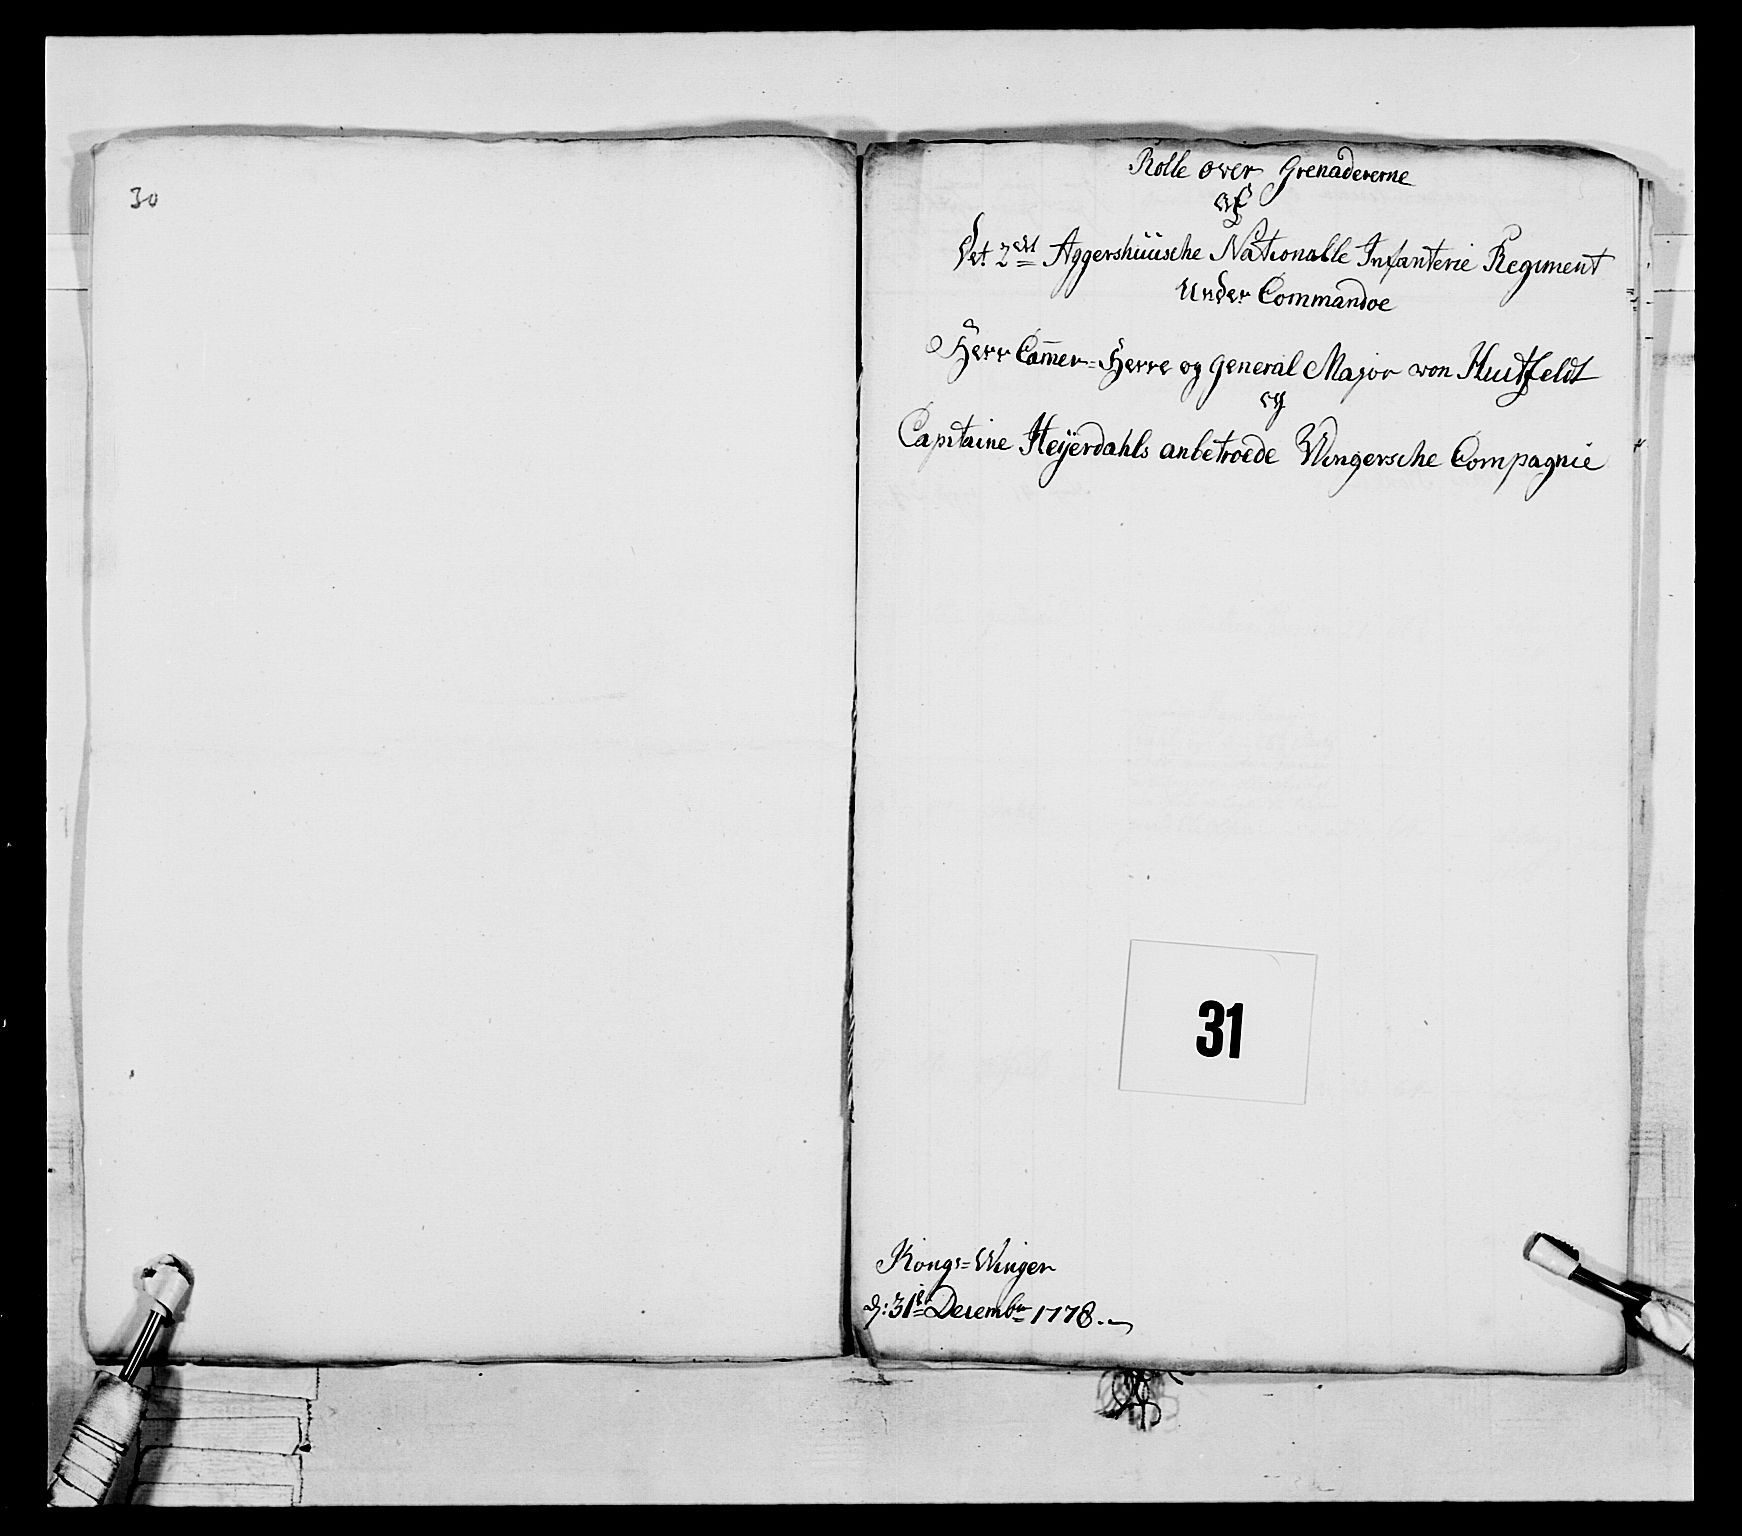 30
Rolle over Grenadererne
af
Det 2det Aggershüüsche Nationalle Infanterie Regiment
Under Commandoe
Herr Cam̄er=Herre og General Major von Huitfeldt
og
Capitaine Heÿerdahls anbetroede Wingersche Compagnie
31
Kongs=Winger
d: 31te Decembr 1778.